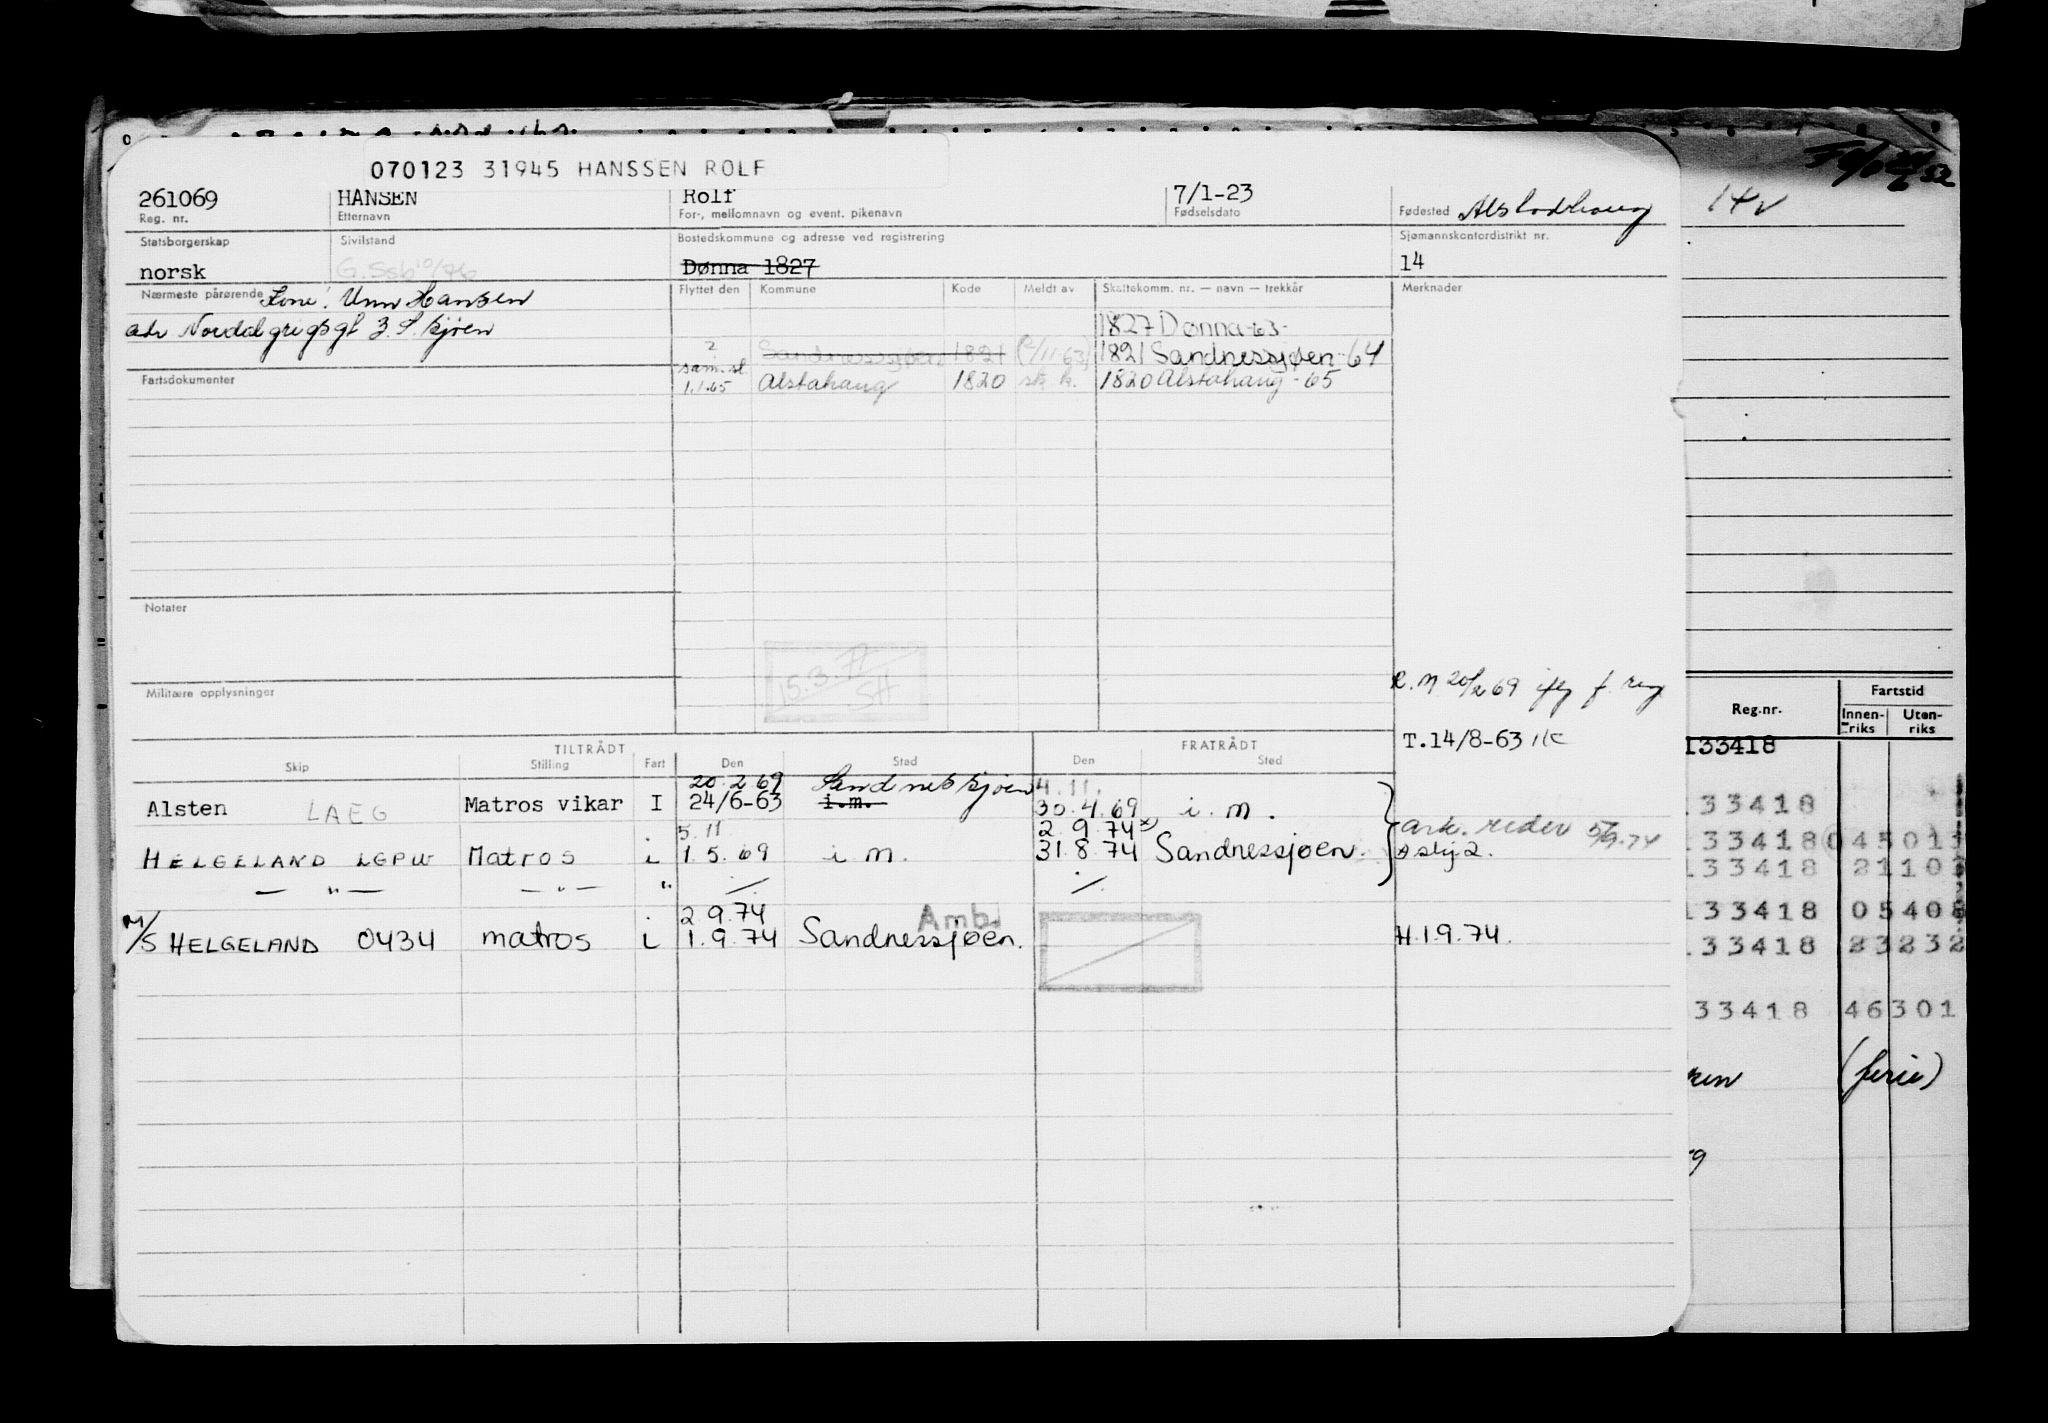 070123 31945 HANSSEN ROLF
261069 HANSEN Rolf 7/1-23
Reg. nr. Etternavn For-, mellomnavn og event. pikenavn Fødselsdato Fødested
Statsborgerskap Sivilstand Bostedskommune og adresse ved registrering Sjømannskontordistrikt nr.
norsk G. Ssb 10/76 Dønna 1827 14
Nærmeste pårørende Kone: Unn Hansen Flyttet den Kommune Kode Meldt av Skattekomm. nr. — navn — trekkår Merknader
1827 Dønna -63-
Sandnessjøen 1821 1821 Sandnessjøen -64
sam. sl.
Fartsdokumenter 1.1.65 Alstahaug 1820 1820 Alstahaug - 65
Notater
15.3.77
SH
Militære opplysninger
R.M 20/2 69
T.14/8-63
TILTRÅDT FRATRÅDT
Skip Stilling Fart Den Sted Den Sted
20.2.69 Sandnessjøen 4.11.
Alsten LAEG Matros vikar I 24/6-63 i.m. 30.4.69 i. m.
5.11 2.9.74 x) ark. reder 5/9.74
HELGELAND LGPW Matros i 1.5.69 i m. 31.8.74 Sandnessjøen.
— " — — " — " ./. ./.
2.9.74 Amb.
M/S HELGELAND 0434 matros i 1.9.74 Sandnessjøen. H.1.9.74.
14
Reg.nr. Fartstid
Innen-riks Uten-riks
133418
133418
133418 045011
133418
133418 05408
133418 23232
33418 46301
(ferie)